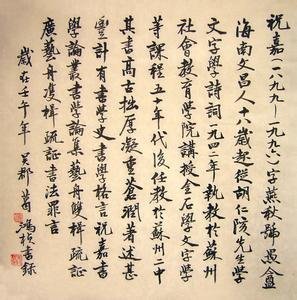 祝嘉(一八九九—一九九六)字燕秋號愚盦
海南文昌人十八歲起從胡仁陔先生學
文字學詩詞一九四二年執教於蘇州
社會教育學院講授金石學文字學
等課程五十年代後任教於蘇州二中
其書高古拙厚凝重蒼潤著述甚
豐計有書學史書學格言祝嘉書
學論叢書學論集藝舟雙楫疏証
廣藝舟雙楫疏証書法罪言
歲在壬午年吳郡葛鴻楨書錄